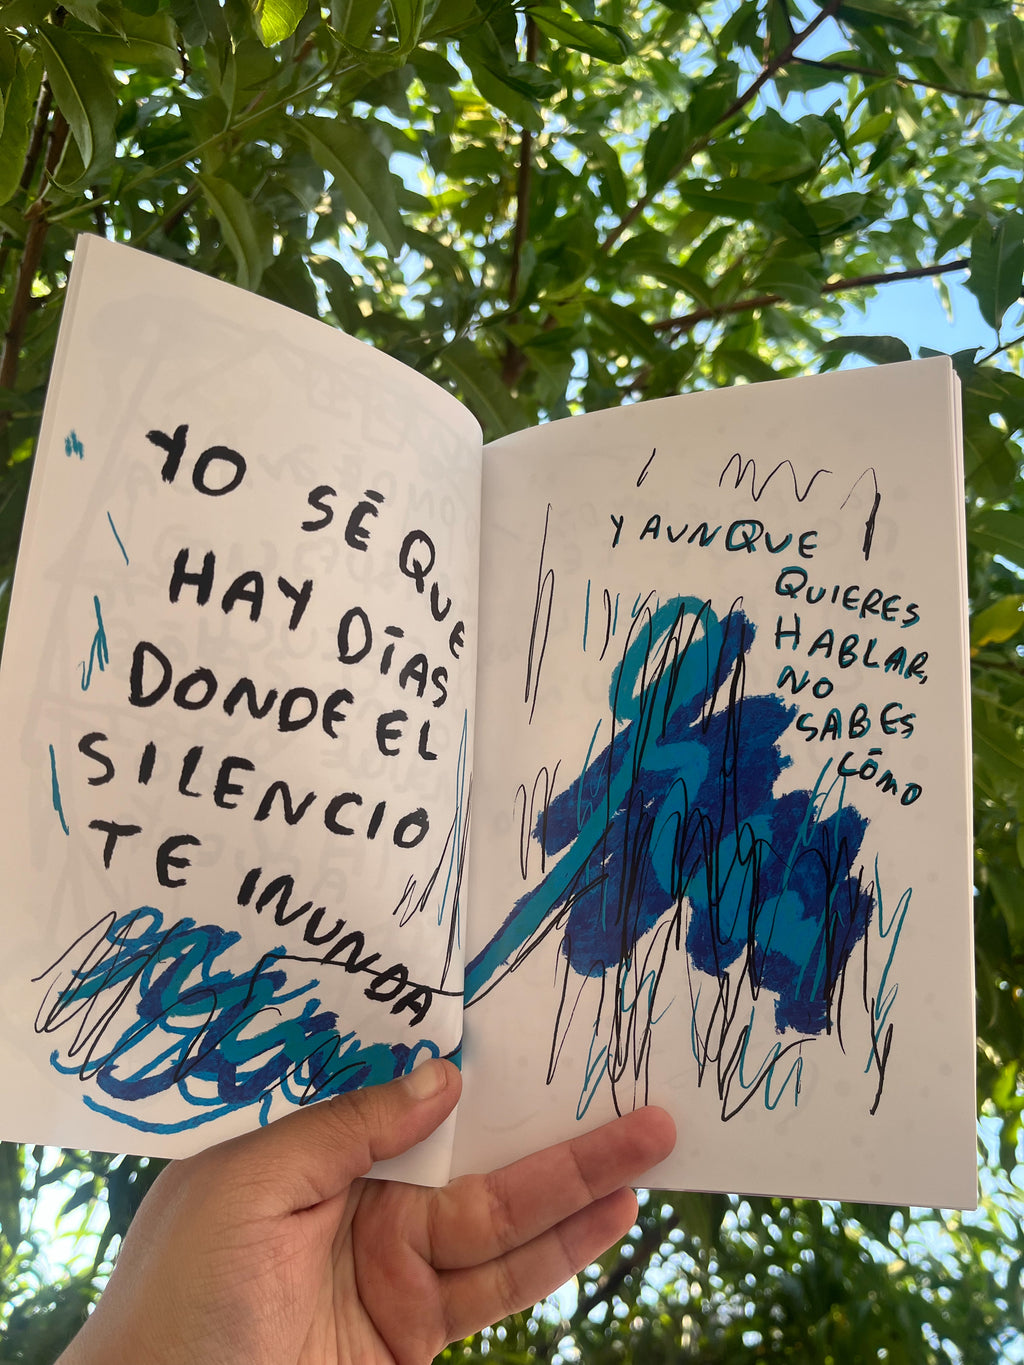 YO SÉ QUE
HAY DÍAS
DONDE EL
SILENCIO
TE INUNDA
Y AUNQUE
QUIERES
HABLAR,
NO
SABES
CÓMO